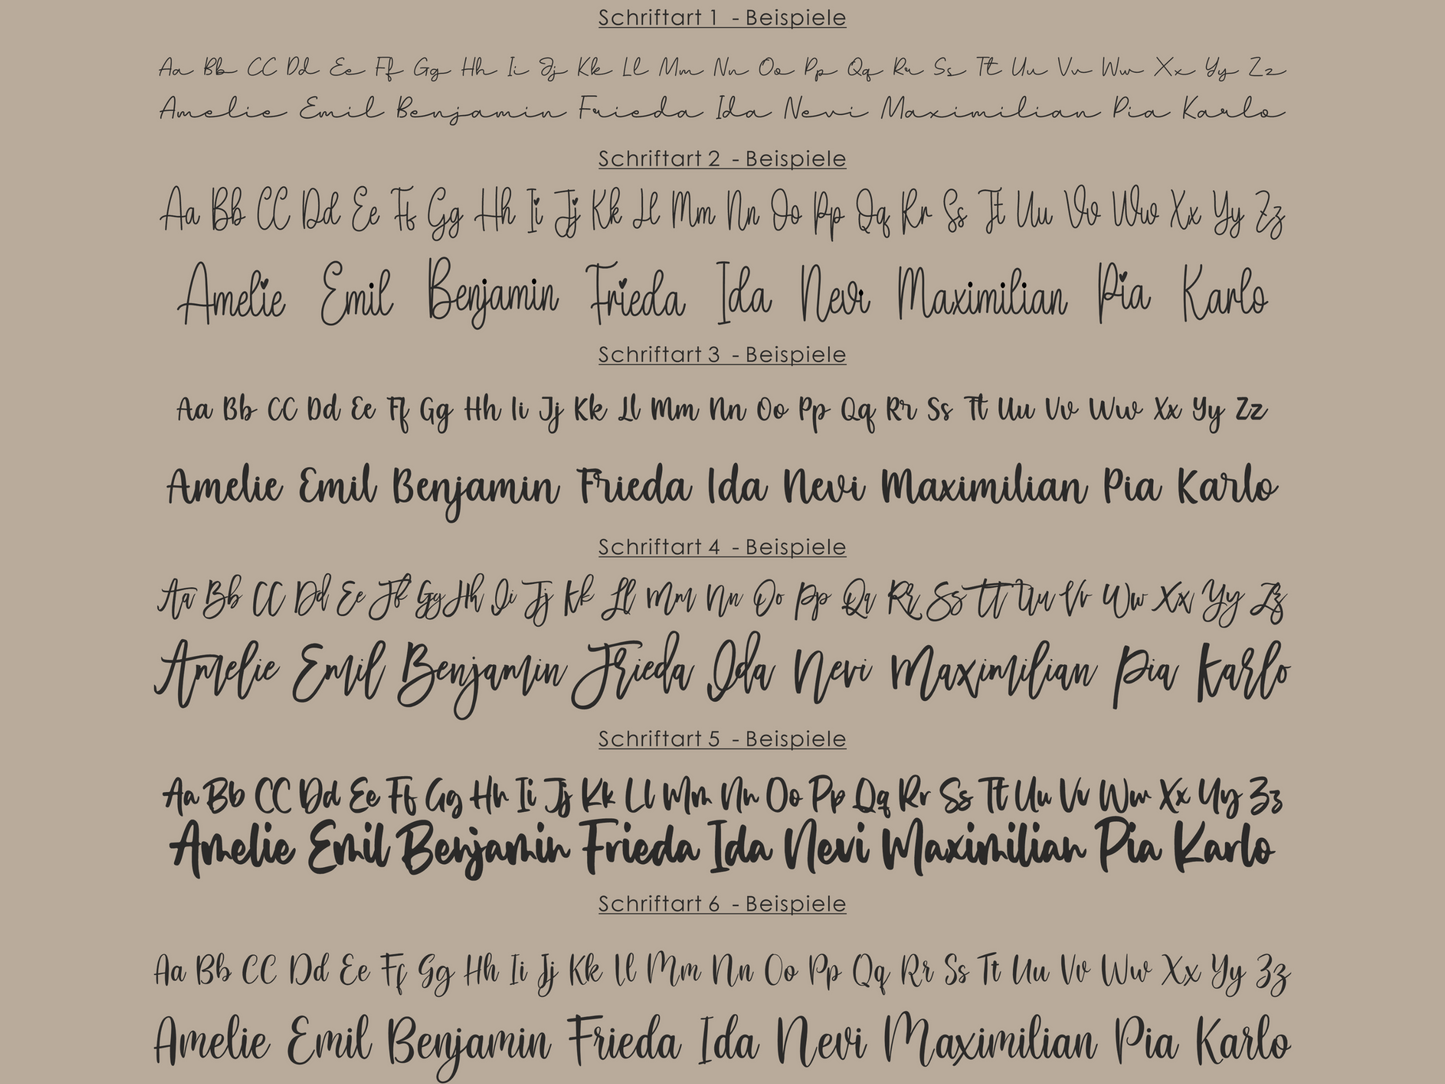 Schriftart 1 - Beispiele
Aa Bb CC Dd Ee Ff Gg Hh Ii Jj Kk Ll Mm Nn Oo Pp Qq Rr Ss Tt Uu Vv Ww Xx Yy Zz
Amelie Emil Benjamin Frieda Ida Nevi Maximilian Pia Karlo
Schriftart 2 - Beispiele
Aa Bb CC Dd Ee Ff Gg Hh Ii Jj Kk Ll Mm Nn Oo Pp Qq Rr Ss Tt Uu Vv Ww Xx Yy Zz
Amelie Emil Benjamin Frieda Ida Nevi Maximilian Pia Karlo
Schriftart 3 - Beispiele
Aa Bb CC Dd Ee Ff Gg Hh Ii Jj Kk Ll Mm Nn Oo Pp Qq Rr Ss Tt Uu Vv Ww Xx Yy Zz
Amelie Emil Benjamin Frieda Ida Nevi Maximilian Pia Karlo
Schriftart 4 - Beispiele
Aa Bb CC Dd Ee Ff Gg Hh Ii Jj Kk Ll Mm Nn Oo Pp Qq Rr Ss Tt Uu Vv Ww Xx Yy Zz
Amelie Emil Benjamin Frieda Ida Nevi Maximilian Pia Karlo
Schriftart 5 - Beispiele
Aa Bb CC Dd Ee Ff Gg Hh Ii Jj Kk Ll Mm Nn Oo Pp Qq Rr Ss Tt Uu Vv Ww Xx Yy Zz
Amelie Emil Benjamin Frieda Ida Nevi Maximilian Pia Karlo
Schriftart 6 - Beispiele
Aa Bb CC Dd Ee Ff Gg Hh Ii Jj Kk Ll Mm Nn Oo Pp Qq Rr Ss Tt Uu Vv Ww Xx Yy Zz
Amelie Emil Benjamin Frieda Ida Nevi Maximilian Pia Karlo